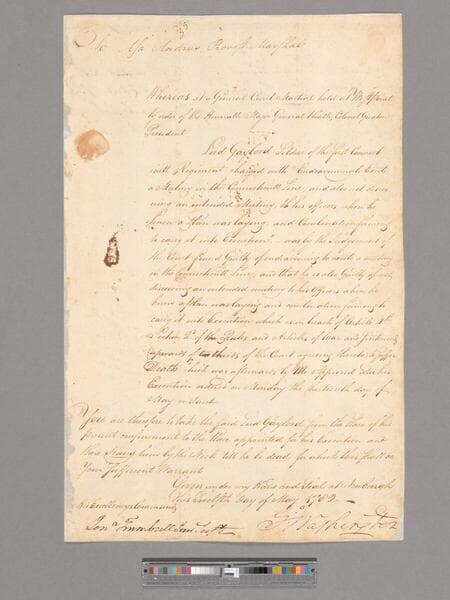 To Asa Andrus Provost Marshal
Whereas at a General Court Martial held at Wt. Point
by order of the Honorable Major General Heath, Colonel Greaton
President
Lud Gaylord Soldier of the first Connect
icutt Regiment charged with Endeavouring to Excite
a Mutiny in the Connecticutt Line, and also not discov
ering an intended Mutiny to his officers when he
knew a Plan was laying, and Combination forming
to carry it into Execution, was by the Judgement of
the Court found Guilty of endeavouring to excite a mutiny
in the Connecticutt Line, and that he is also Guilty of not
discovering an intended mutiny to his Officers when he
knew a Plan was laying and combination forming to
carry it into Execution which is in breach of Article 4th
Section 2d of the Rules and Articles of War and sentenced
(upwards of two thirds of the Court agreeing thereto) to suffer
Death which was afterwards by Me approved & his
Execution ordered on Monday the thirteenth day of
May instant
You are therefore to take the said Lud Gaylord from the Place of his
present confinement to the Place appointed for his Execution and
there Hang him by the Neck till he be dead for which this shall be
Your Sufficient Warrant
Given under my Hand and Seal at Newburgh
this Twelfth Day of May 1782
His Excellency's Command
Jona. Trumbull Junr Secty
Go Washington